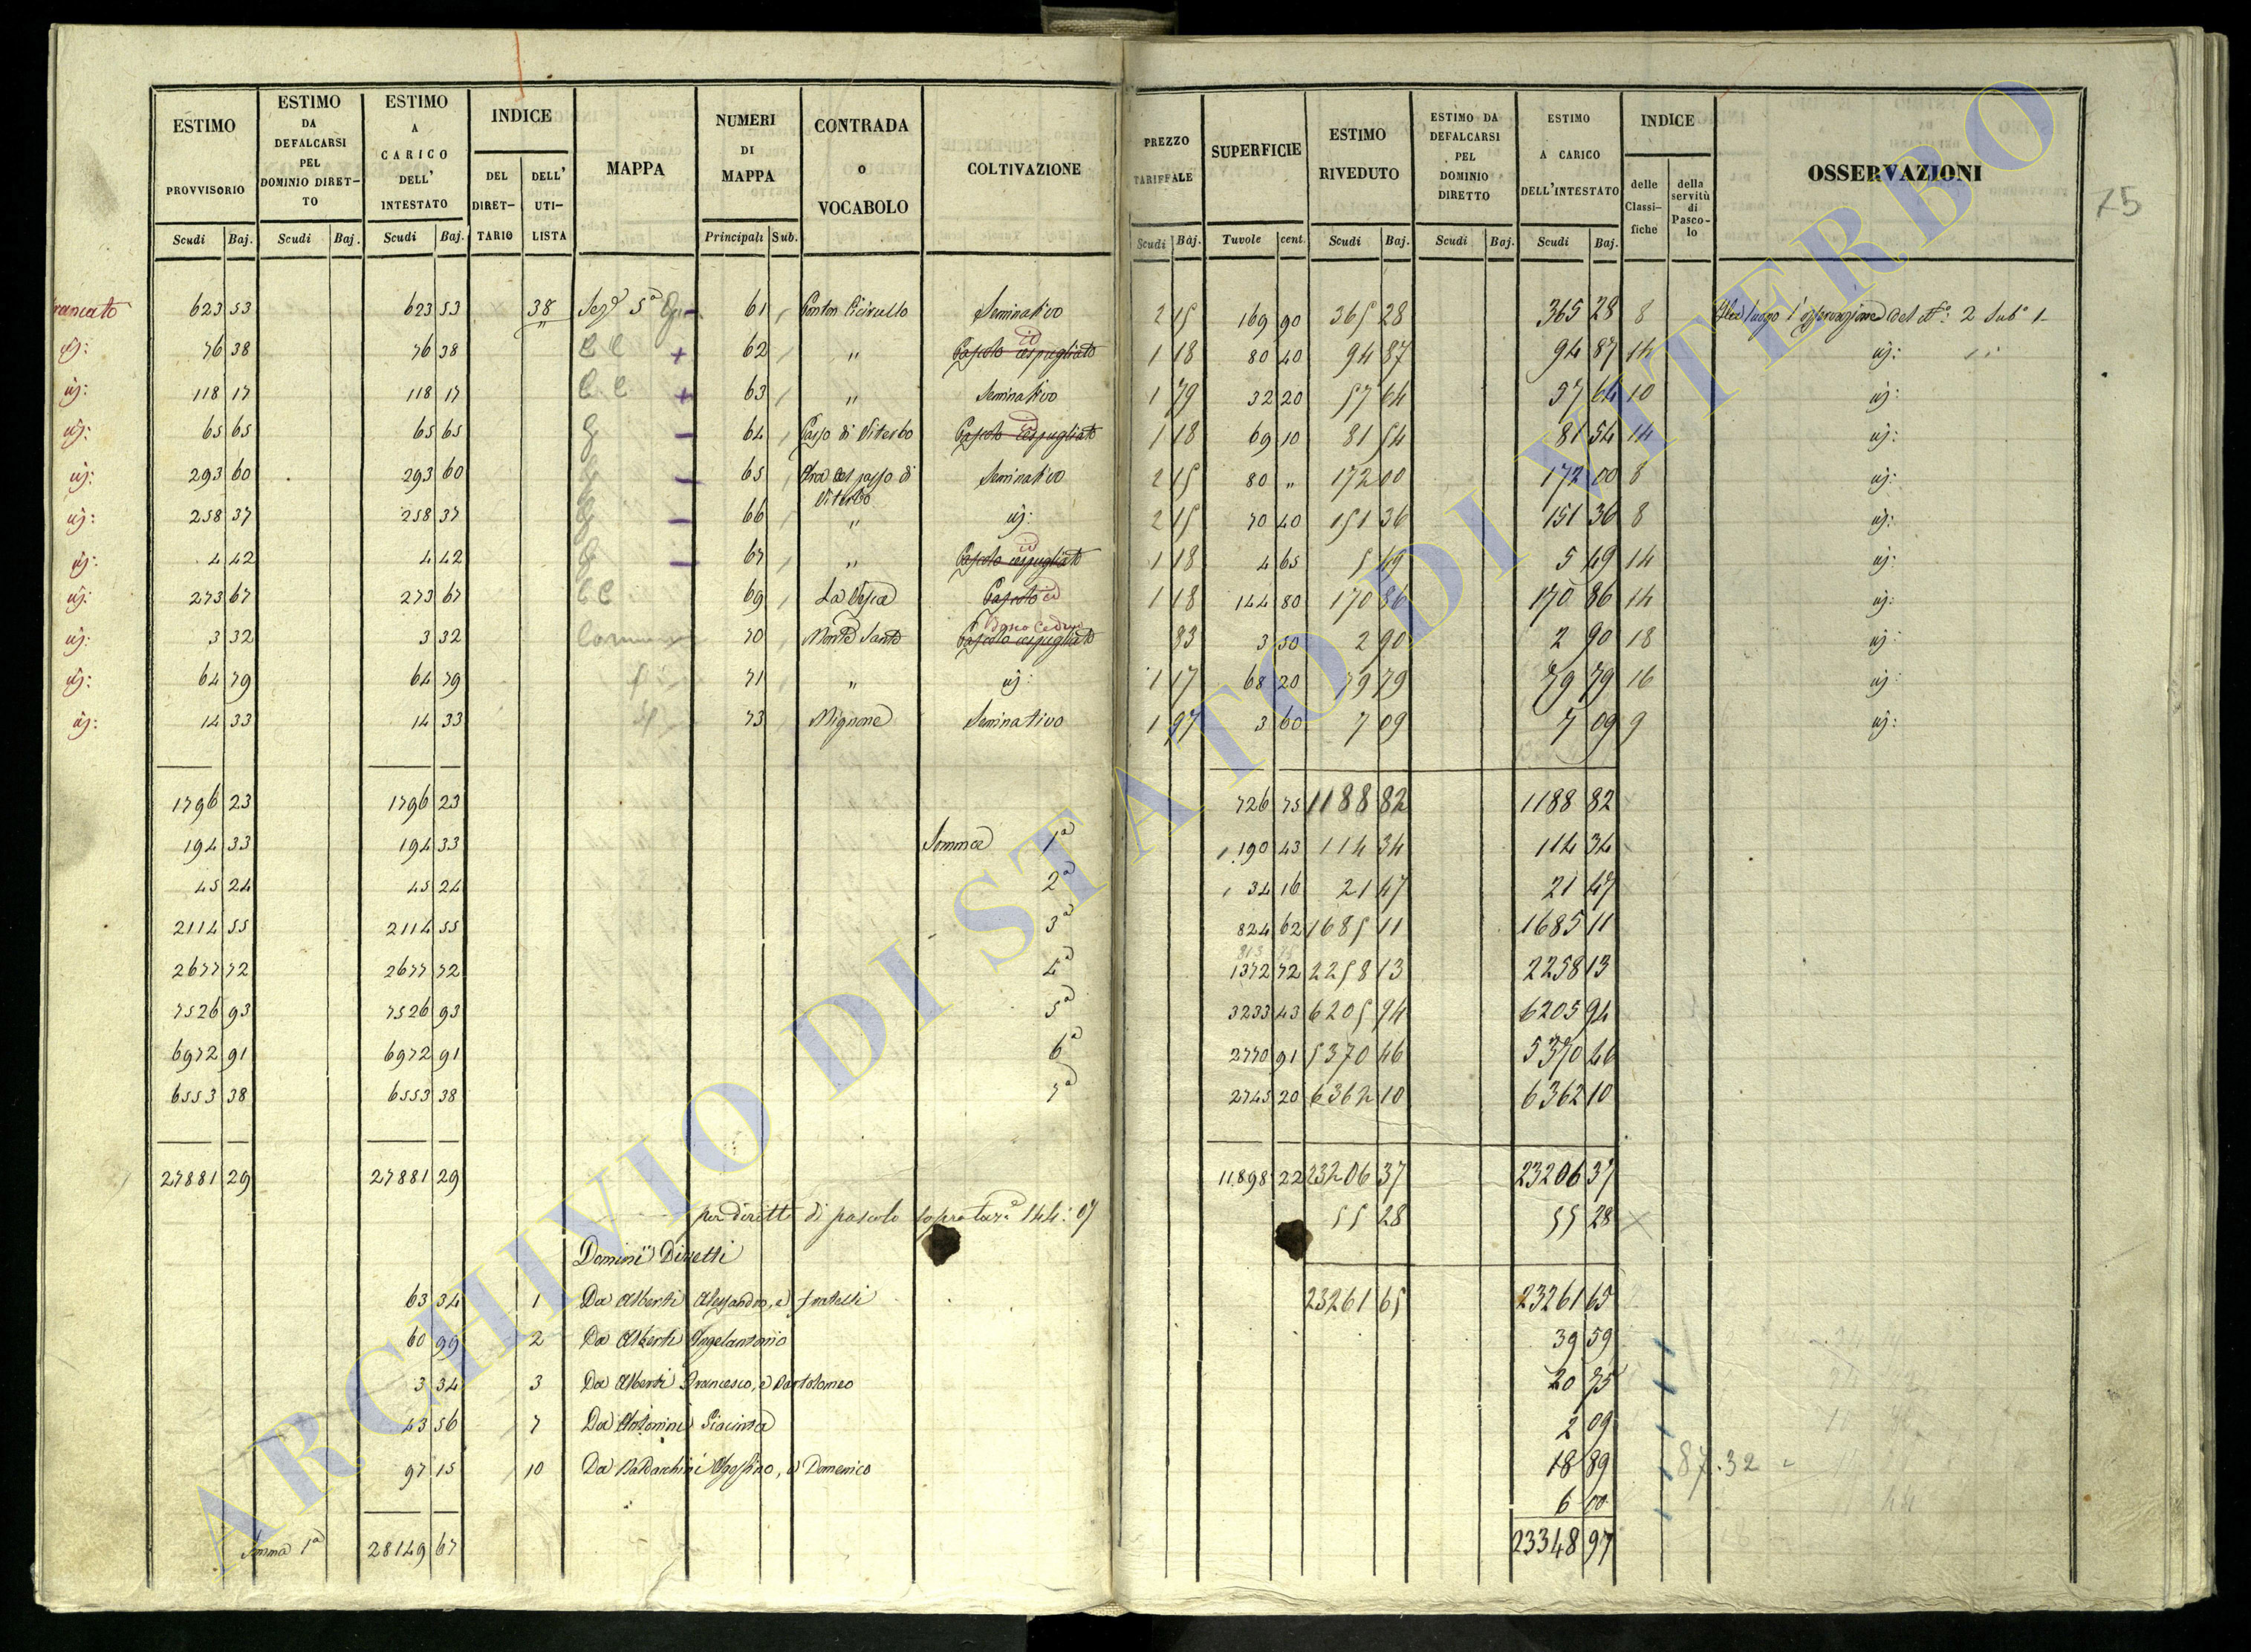 ESTIMO PROVVISORIO | ESTIMO DA DEFALCARSI PEL DOMINIO DIRET-TO | ESTIMO A CARICO DELL' INTESTATO | INDICE | MAPPA | NUMERI DI MAPPA | CONTRADA o VOCABOLO | COLTIVAZIONE | PREZZO TARIFFALE | SUPERFICIE | ESTIMO RIVEDUTO | ESTIMO DA DEFALCARSI PEL DOMINIO DIRETTO | ESTIMO A CARICO DELL'INTESTATO | INDICE | OSSERVAZIONI
DEL DIRET-TARIO | DELL' UTI-LISTA | delle Classi-fiche | della servitù di Pasco-lo
Scudi | Baj. | Scudi | Baj. | Scudi | Baj. | Principali | Sub. | Scudi | Baj. | Tavole | cent. | Scudi | Baj. | Scudi | Baj. | Scudi | Baj.
75
623 53 | 623 53 | 38 | Sez.e 5a | 61 | Seminativo | 2 15 | 169 90 | 365 28 | 365 28 | 8 | del No: 2 Sub.o 1
id: | 76 38 | 76 38 | 62 | " | Pascolo cespugliato | id | 1 18 | 80 40 | 94 87 | 94 87 | 14 | id:
id: | 118 17 | 118 17 | 63 | " | Seminativo | 1 79 | 32 20 | 57 64 | 57 64 | 10 | id:
id: | 65 65 | 65 65 | 64 | Passo di Viterbo | Pascolo cespugliato | id | 1 18 | 69 10 | 81 54 | 81 54 | 14 | id:
id: | 293 60 | 293 60 | 65 | passo di Viterbo | Seminativo | 2 15 | 80 " | 172 00 | 172 00 | 8 | id:
id: | 258 37 | 258 37 | 66 | " | id: | 2 15 | 70 40 | 151 36 | 151 36 | 8 | id:
id: | 4 42 | 4 42 | 67 | " | Pascolo cespugliato | id | 1 18 | 4 65 | 5 49 | 5 49 | 14 | id:
id: | 273 67 | 273 67 | 69 | Pascolo | id | 1 18 | 144 80 | 170 86 | 170 86 | 14 | id:
id: | 3 32 | 3 32 | 70 | Monte Santo | Bosco Ceduo | Pascolo cespugliato | 83 | 3 50 | 2 90 | 2 90 | 18 | id:
id: | 64 79 | 64 79 | 71 | " | id: | 1 17 | 68 20 | 79 79 | 79 79 | 16 | id:
id: | 14 33 | 14 33 | 73 | Mignone | Seminativo | 1 97 | 3 60 | 7 09 | 7 09 | 9 | id:
1796 23 | 1796 23 | 726 75 | 1188 82 | 1188 82
194 33 | 194 33 | Somma 1a | 190 43 | 114 34 | 114 34
45 24 | 45 24 | 2a | 34 16 | 21 47 | 21 47
2114 55 | 2114 55 | 3a | 824 62 | 1685 11 | 1685 11
2677 72 | 2677 72 | 4a | 1372 72 | 2258 13 | 2258 13
7526 93 | 7526 93 | 5a | 3233 43 | 6205 94 | 6205 94
6972 91 | 6972 91 | 6a | 2770 91 | 5370 46 | 5370 46
6553 38 | 6553 38 | 7a | 2745 20 | 6362 10 | 6362 10
27881 29 | 27881 29 | 11898 22 | 23206 37 | 23206 37
per diritto di pascolo sopra tav.e 144: 07 | 55 28 | 55 28
Dominj Diretti
63 34 | 1 | Da Alberti Alessandro, e fratelli | 23261 65 | 23261 65
60 99 | 2 | Da Alberti Angelantonio | 39 59
3 34 | 3 | Da Alberti Francesco, e Bartolomeo | 20 75
43 56 | 7 | Da Antonini Giacinta | 2 09
97 15 | 10 | Da Baldacchini Agostino, e Domenico | 18 89 | 87.32
6 00
Somma 1a | 28149 67 | 23348 97
ARCHIVIO DI STATO DI VITERBO